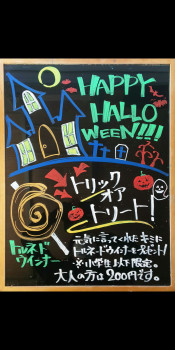 HAPPY
HALLO
WEEN!!!
トリック
オア
トリート!
トルネード
ウインナー
元気に言ってくれたキミに
トルネードウインナーをプレゼント!
※小学生以下限定。
大人の方は200円です。